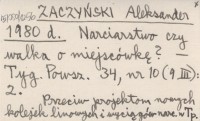 ZACZYŃSKI Aleksander
1980 d. Narciarstwo czy
walka o miejscówkę?
Tyg. Powsz. 34, nr 10 (9. III):
2.
Przeciw projektom nowych
kolejek linowych i wyciągów narc. w Tp.